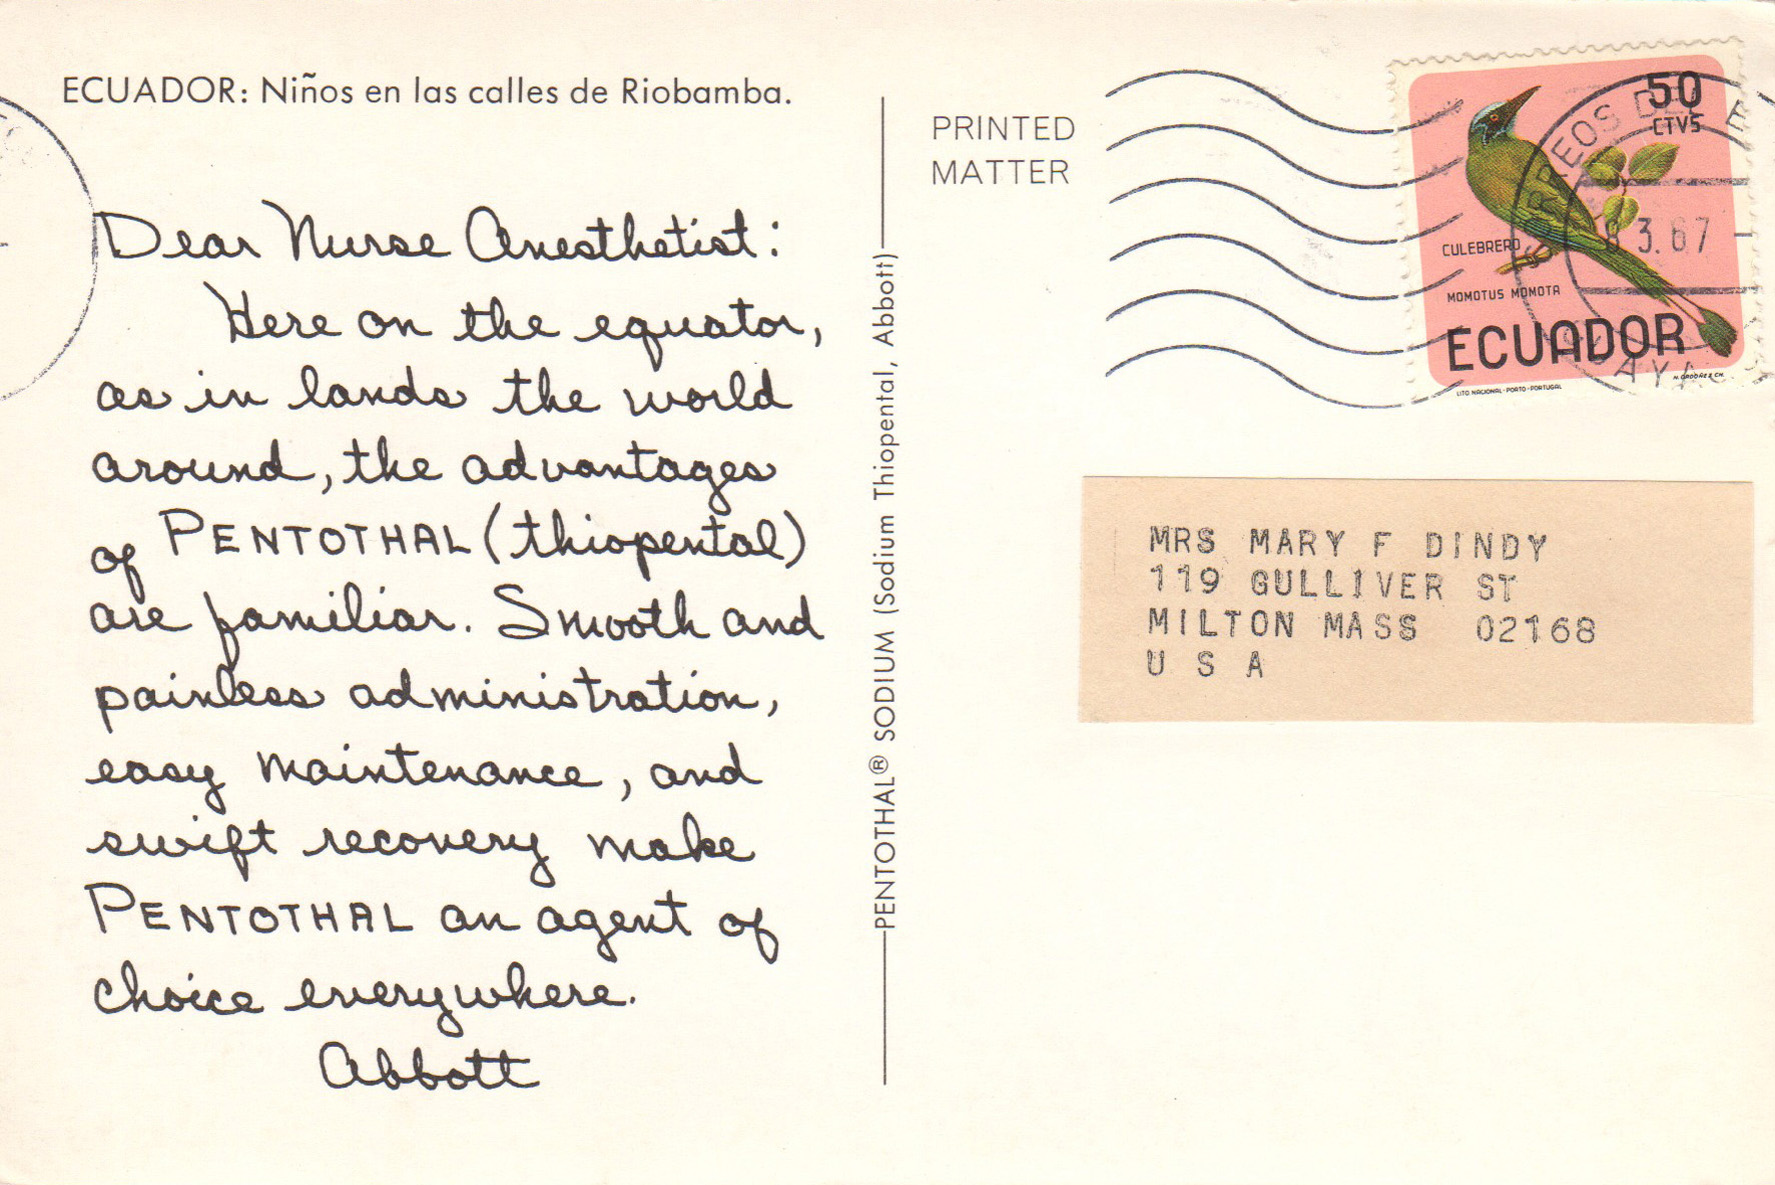 ECUADOR: Niños en las calles de Riobamba.
Dear Nurse Anesthetist:
Here on the equator,
as in lands the world
around, the advantages
of PENTOTHAL (thiopental)
are familiar. Smooth and
painless administration,
easy maintenance, and
swift recovery make
PENTOTHAL an agent of
choice everywhere.
Abbott
PENTOTHAL® SODIUM (Sodium Thiopental, Abbott)
PRINTED
MATTER
50
CTVS
CULEBRERO
MOMOTUS MOMOTA
ECUADOR
LITO NACIONAL-PORTO-PORTUGAL
N. ORDOÑEZ CH.
3.67
MRS MARY F DINDY
119 GULLIVER ST
MILTON MASS 02168
U S A